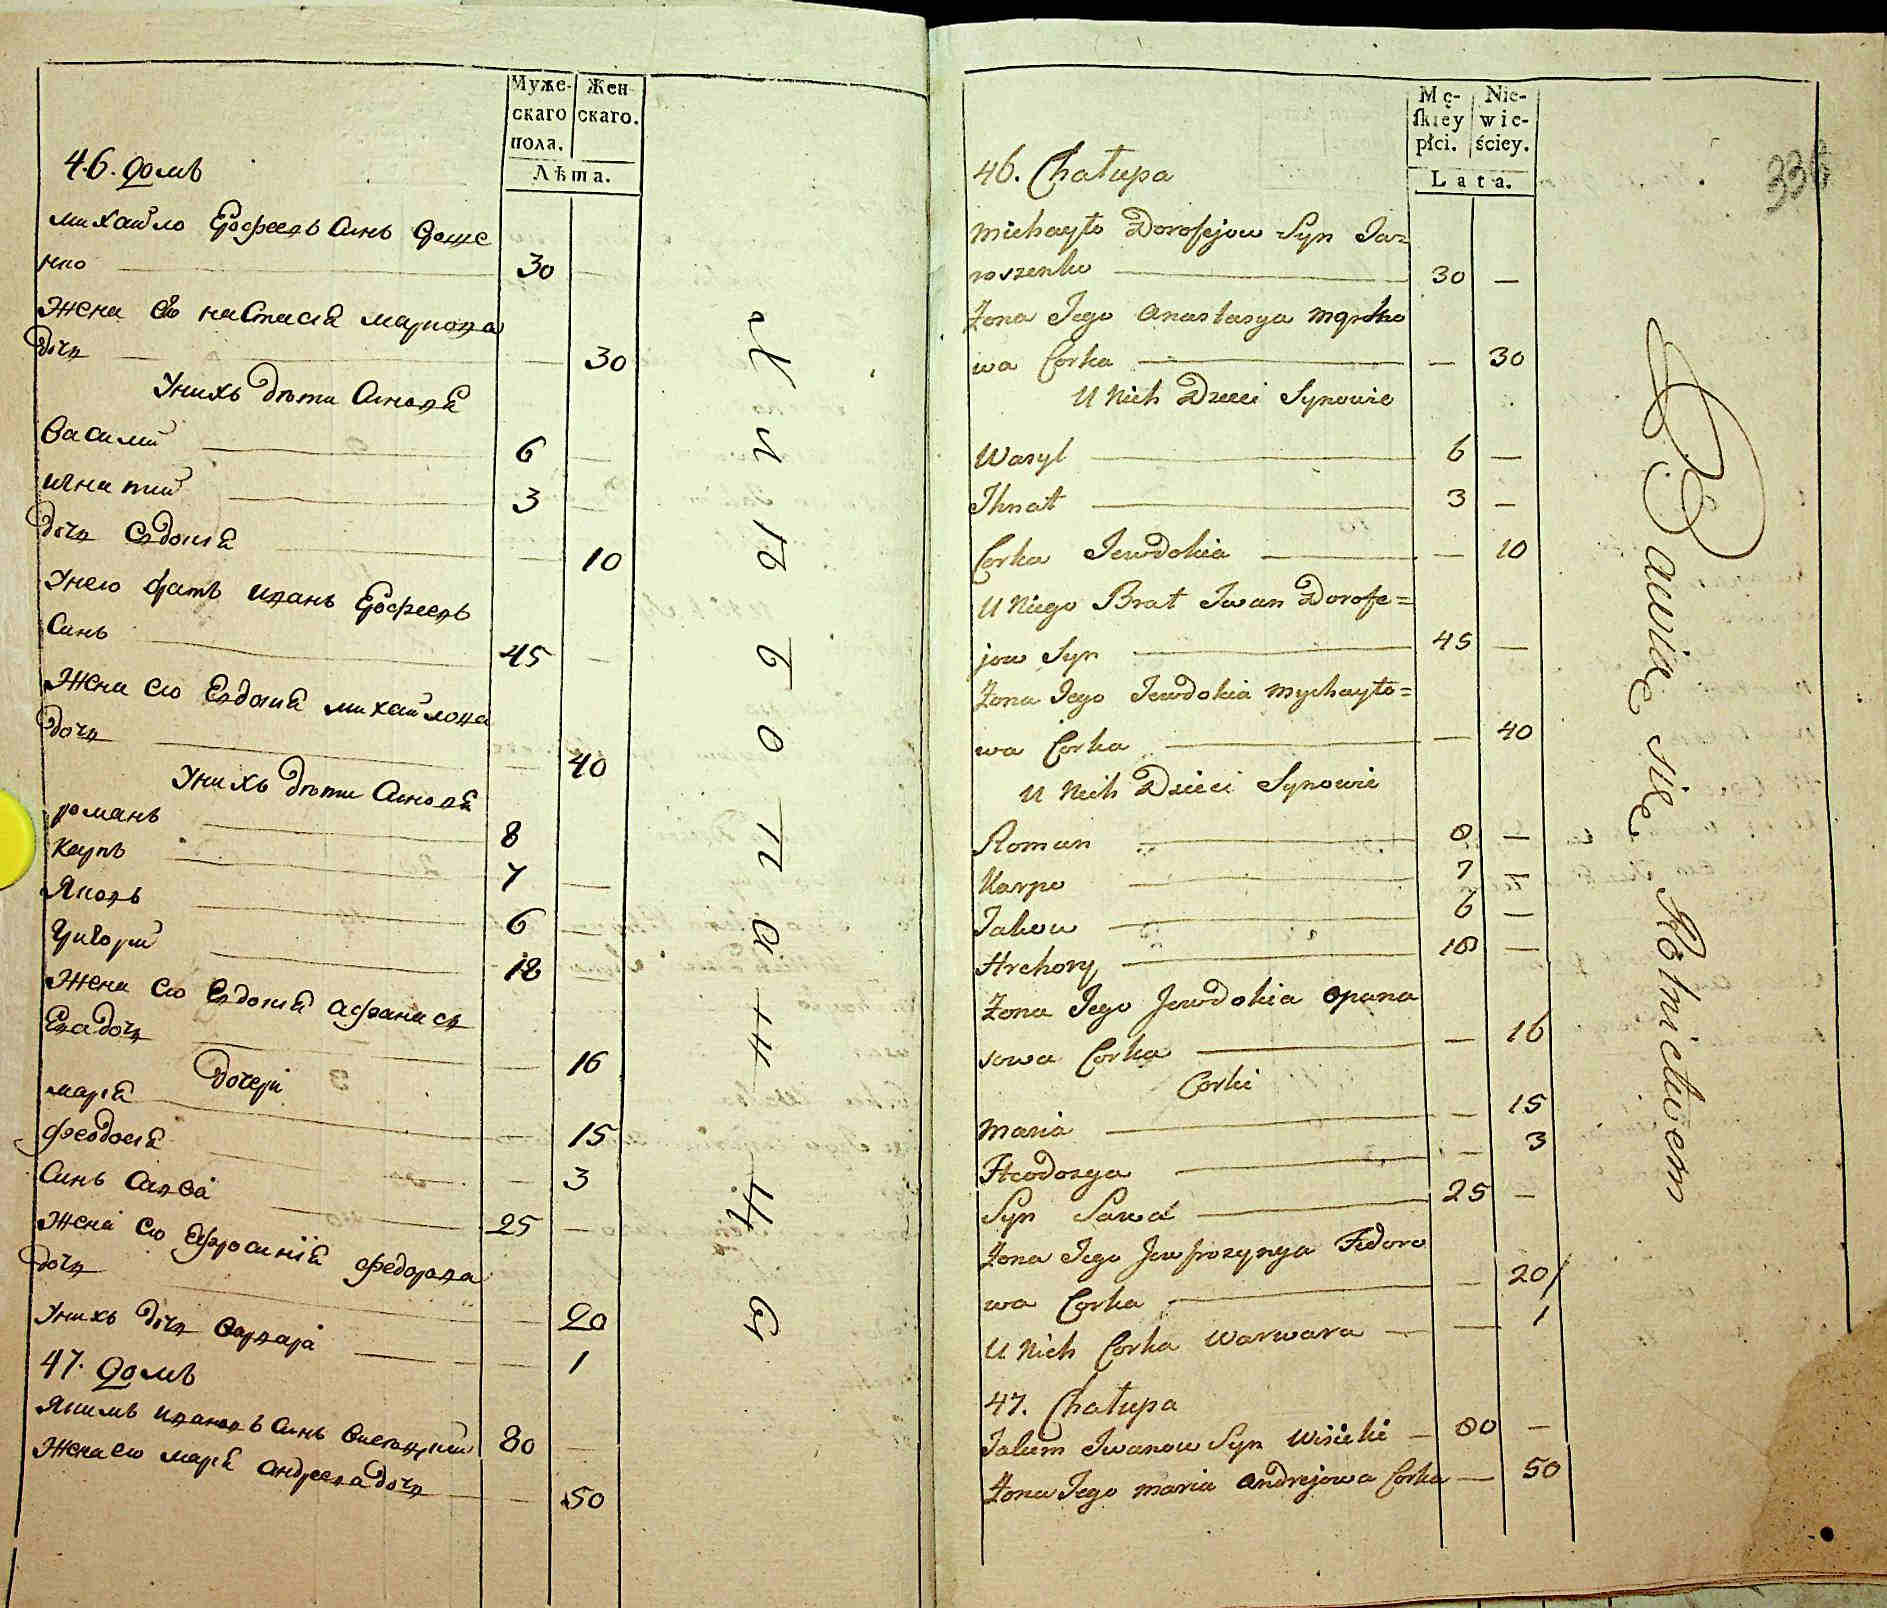 Муже-
скаго
пола.
Жен
скаго.
Лѣта.
46. домъ
михайло Ерофеевъ Синъ
нко — 30 —
Жена его настасия маркова
дочь — — 30
Унихъ дѣти Синовя
Василий — 6 —
игнатий — 3 —
дочь Евдокия — — 10
Унего братъ иванъ Ерофеевъ
Синъ — 45 —
Жена его Евдокия михайлова
дочь — — 40
Унихъ дѣти Синовя
романъ — 8
карпъ — 7 —
Яковъ — 6 —
Григорий — 18 —
Жена его Евдокия афанась
Ева дочь — — 16
дочери
мария — — 15
феодосия — — 3
Синъ Савва — 25 —
Жена его Ефросиния федорова
дочь — — 20
Унихъ дочь варвара — — 1
47. домъ
Якимъ ивановъ Синъ 80 —
Жена его мария андреева дочь — — 50
Хлѣбопаш
Mę-
ſkiey
płci.
Nie-
wie-
ściey.
Lata.
336
46. Chałupa
Michayło Dorofejow Syn Ja=
roszenko — 30 —
Żona Jego Anastasya Marko
wa Corka — — 30
U Nich Dzieci Synowie
Wasyl — 6 —
Ihnat — 3 —
Corka Jewdokia — — 10
U Niego Brat Iwan Dorofe=
jow Syn — 45 —
Żona Jego Jewdokia Mychayło=
wa Corka — — 40
U Nich Dzieci Synowie
Roman — 8 —
Karpo — 7 —
Jakow — 6 —
Hrehory — 18 —
Żona Jego Jewdokia Opana
sowa Corka — — 16
Corki
Maria — — 15
Fteodozya — — 3
Syn Sawa — 25 —
Żona Jego Jewfrozynya Fedoro
wa Corka — — 20
U Nich Corka Warwara — — 1
47. Chałupa
Jakim Iwanow Syn — 80 —
Żona Jego Maria Andrejowa Corka — — 50
Bawią się Rolnictwem